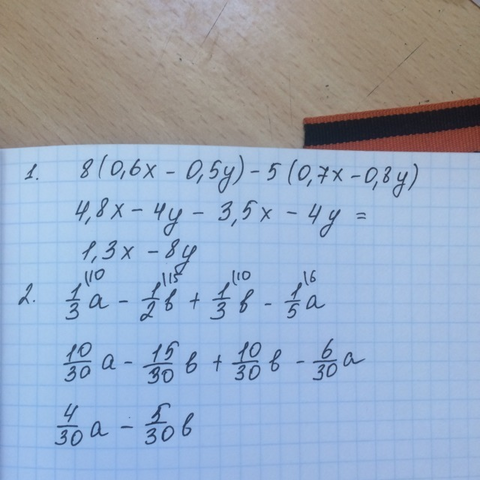 1. 8(0,6x - 0,5y) - 5(0,7x - 0,8y)
4,8x - 4y - 3,5x - 4y =
1,3x - 8y
2. 1/3\10 a - 1/2\15 в + 1/3\10 в - 1/5\6 a
10/30 a - 15/30 в + 10/30 в - 6/30 a
4/30 a - 5/30 в